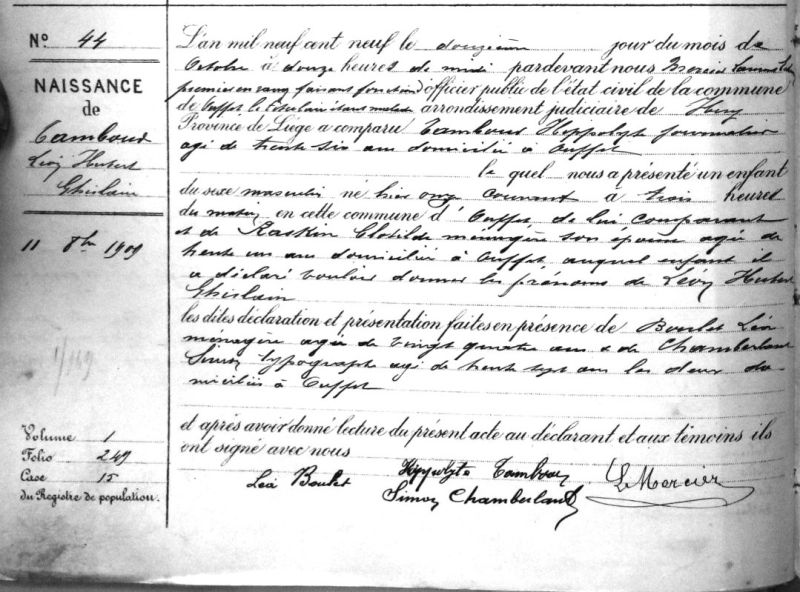 N° 44
NAISSANCE
de
Tambour
Léon Hubert
Ghislain
11 8bre 1909
1/119
Volume 1
Folio 249
Case 15
du Registre de population.
L'an mil neuf cent neuf le douzième jour du mois de
Octobre à douze heures de midi pardevant nous Mercier Laurent
premier en rang faisant fonctions officier public de l'état civil de la commune
de Ouffet le titulaire étant malade arrondissement judiciaire de Huy
Province de Liége a comparu Tambour Hyppolyte journalier
agé de trente six ans domicilié à Ouffet
le quel nous a présenté un enfant
du sexe masculin né hier onze courant à trois heures
du matin en cette commune d'Ouffet, de lui comparant
et de Raskin Clotilde ménagère son épouse agée de
trente un ans domiciliée à Ouffet, auquel enfant il
a déclaré vouloir donner les prénoms de Léon Hubert
Ghislain
les dites déclaration et présentation faites en présence de Boulet Léa
ménagère agée de vingt quatre ans & de Chamberlant
Simon typographe agé de trente sept ans les deux do-
miciliés à Ouffet
et après avoir donné lecture du présent acte au déclarant et aux témoins ils
ont signé avec nous
Léa Boulet Hyppolyte Tambour L Mercier
Simon Chamberlant